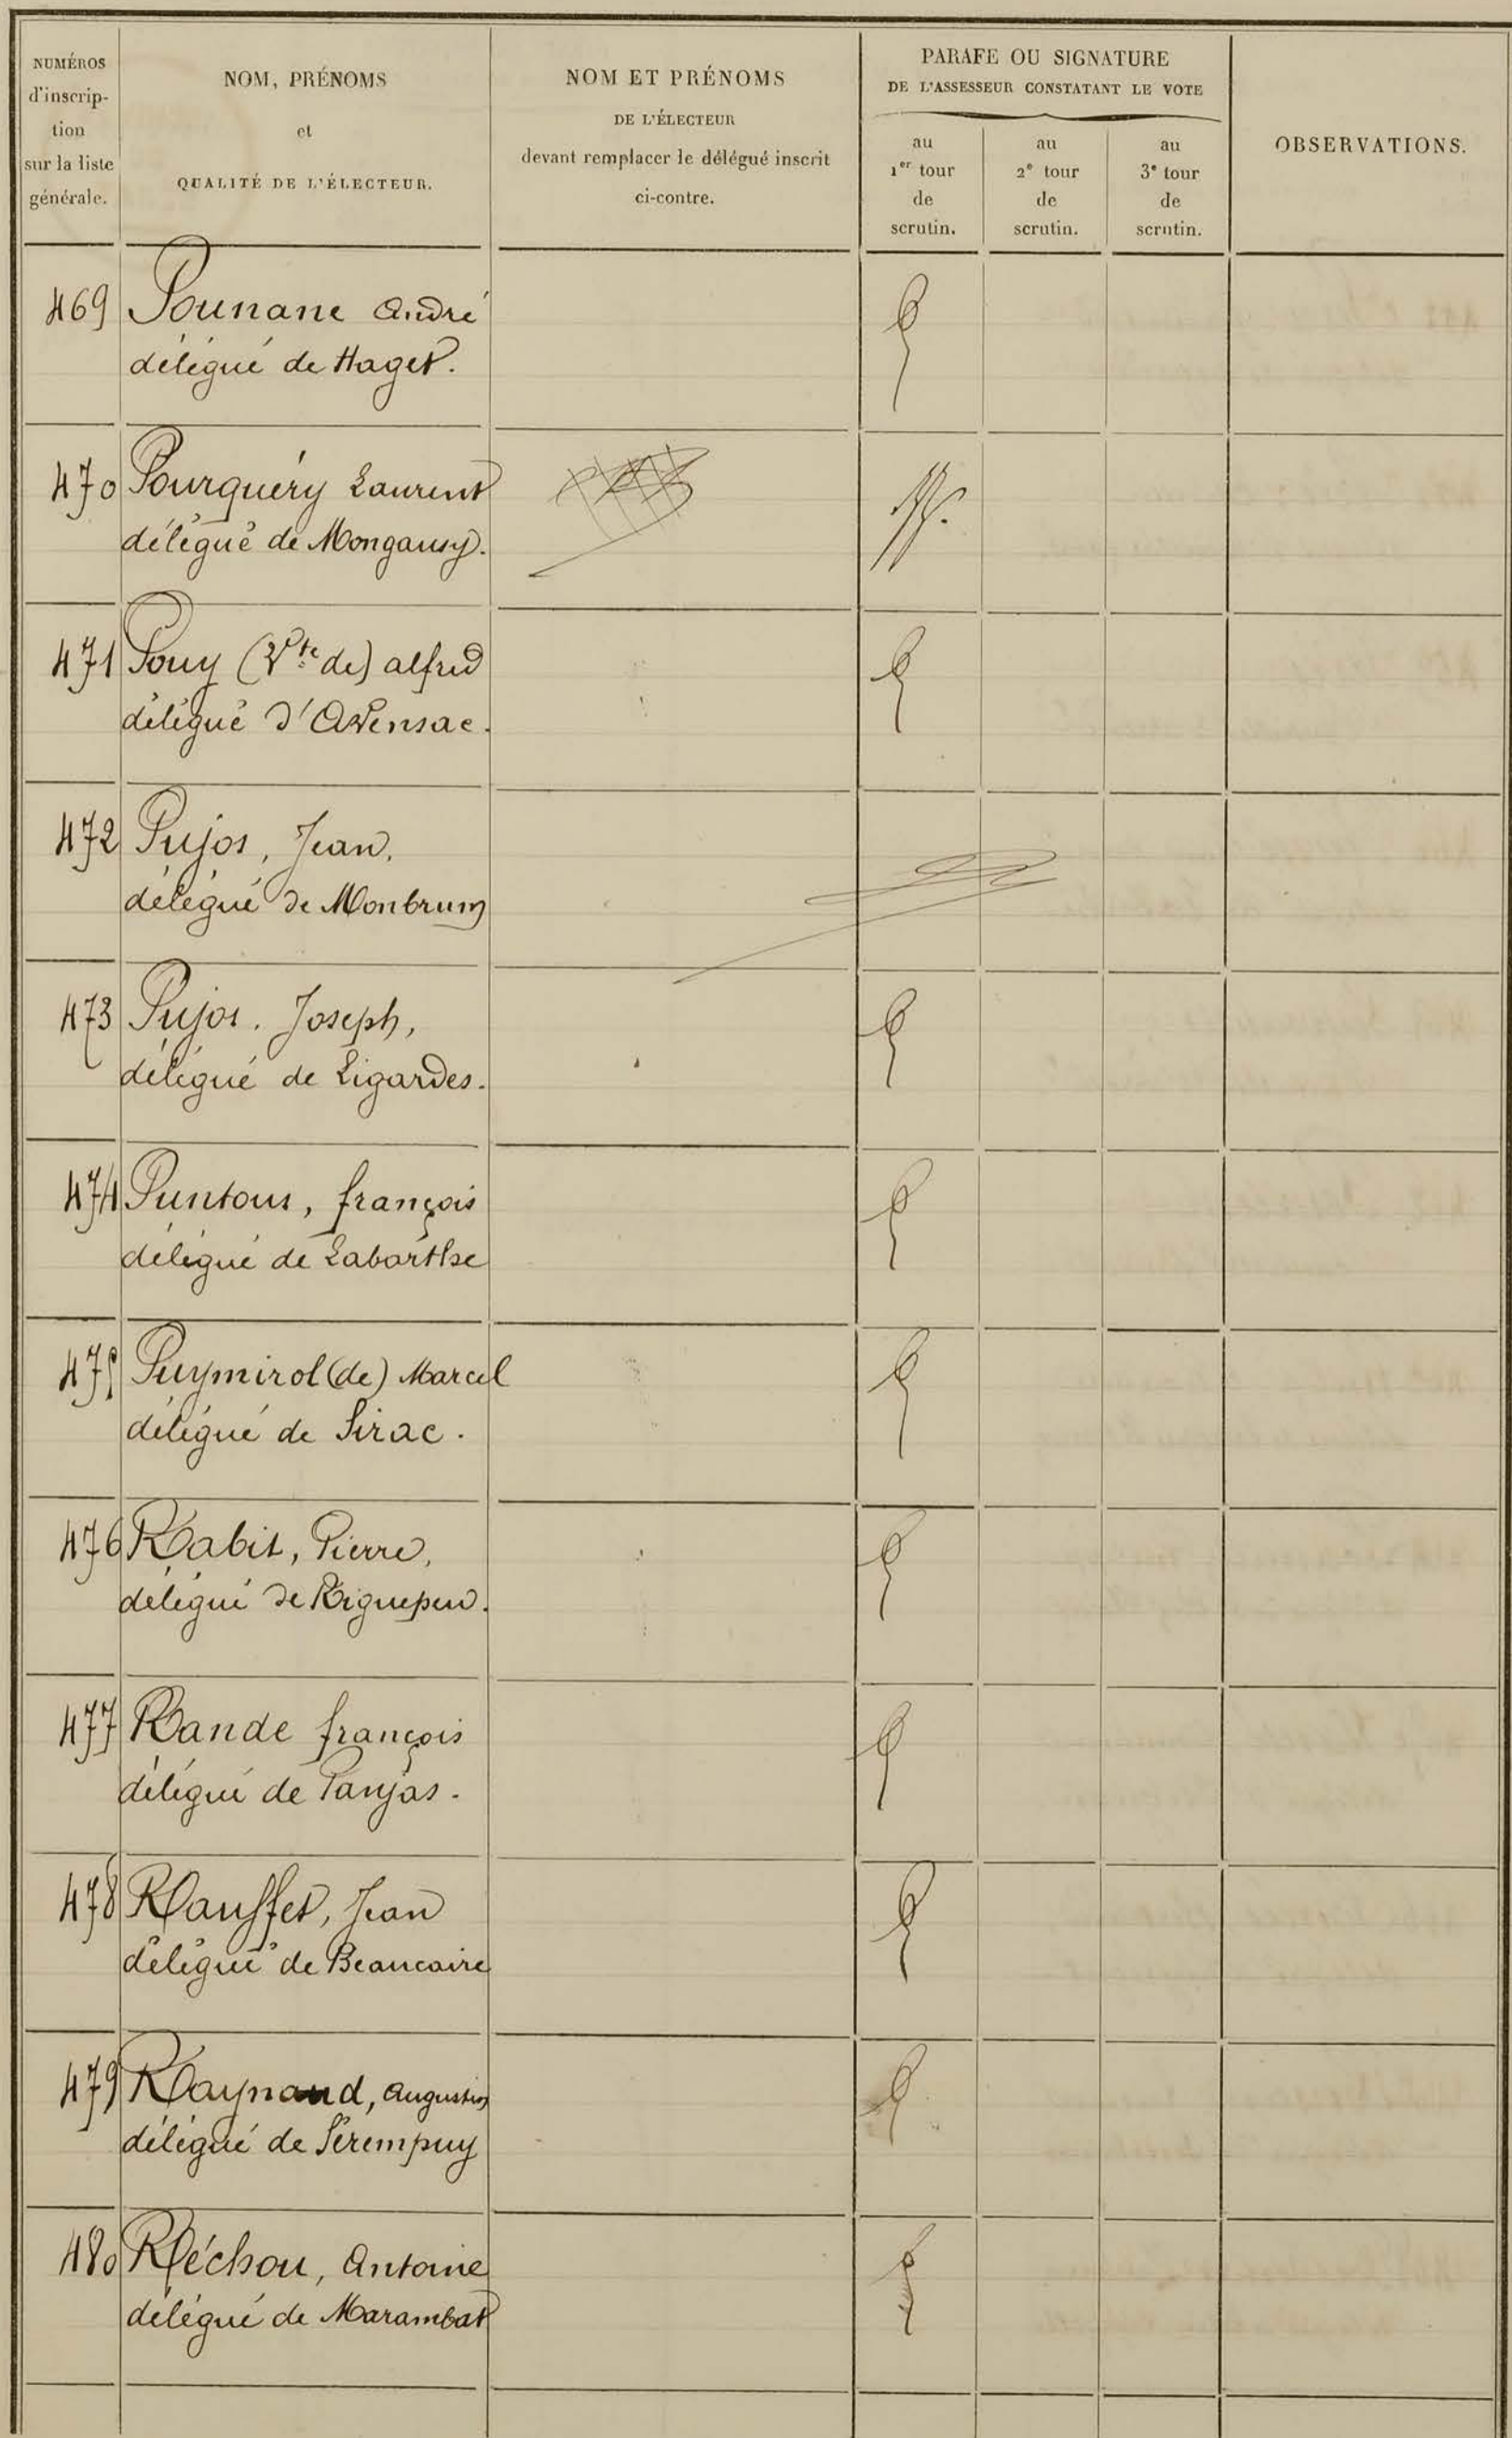 NUMÉROS
d'inscrip-
tion
sur la liste
générale.
NOM, PRÉNOMS
et
QUALITÉ DE L'ÉLECTEUR.
NOM ET PRÉNOMS
DE L'ÉLECTEUR
devant remplacer le délégué inscrit
ci-contre.
PARAFE OU SIGNATURE
DE L'ASSESSEUR CONSTATANT LE VOTE
au
1er tour
de
scrutin.
au
2e tour
de
scrutin.
au
3e tour
de
scrutin.
OBSERVATIONS.
469 Pounane André
délégué de Haget.
470 Pourquéry Laurent
délégué de Mongausy.
471 Pouy (Vte de) alfred
délégué d'Avensac.
472 Pujos, Jean,
délégué de Monbrun
473 Pujos. Joseph,
délégué de Ligardes.
474 Puntous, françois
délégué de Labarthe
475 Puymirol (de) Marcel
délégué de Sirac.
476 Rabit, Pierre,
délégué de Riguepeu.
477 Rande françois
délégué de Panjas.
478 Rauffet, Jean
délégué de Beaucaire
479 Raynaud, Augustin
délégué de Sérempuy
480 Réchou, Antoine
délégué de Marambat